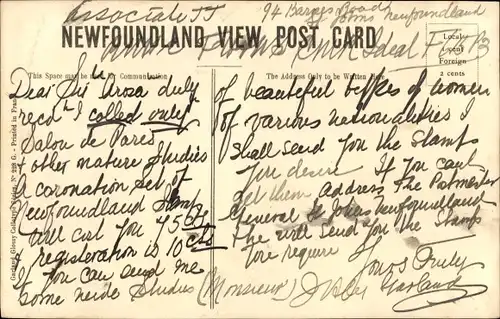 Associate TT
94 Barnes Road
St Johns Newfoundland
NEWFOUNDLAND VIEW POST CARD
Ideal
This Space may be used for Communication
The Address Only to be Written Here
Local
and
Foreign
2 cents
Dear Sir Arosa duly
recd I called only
Salon de Paris
& other nature Studies
A coronation set of
Newfoundland Stamps
will cost you 75 cts
registeration is 10 cts
If you can send me
Some nude Studies (Monsieur)
of beautiful types of women
of various nationalities I
shall send you the Stamps
you desire If you cant
get them Address The Postmaster
General St Johns Newfoundland
He will send you the Stamps
you require
Yours Truly
Garland
Printed in France